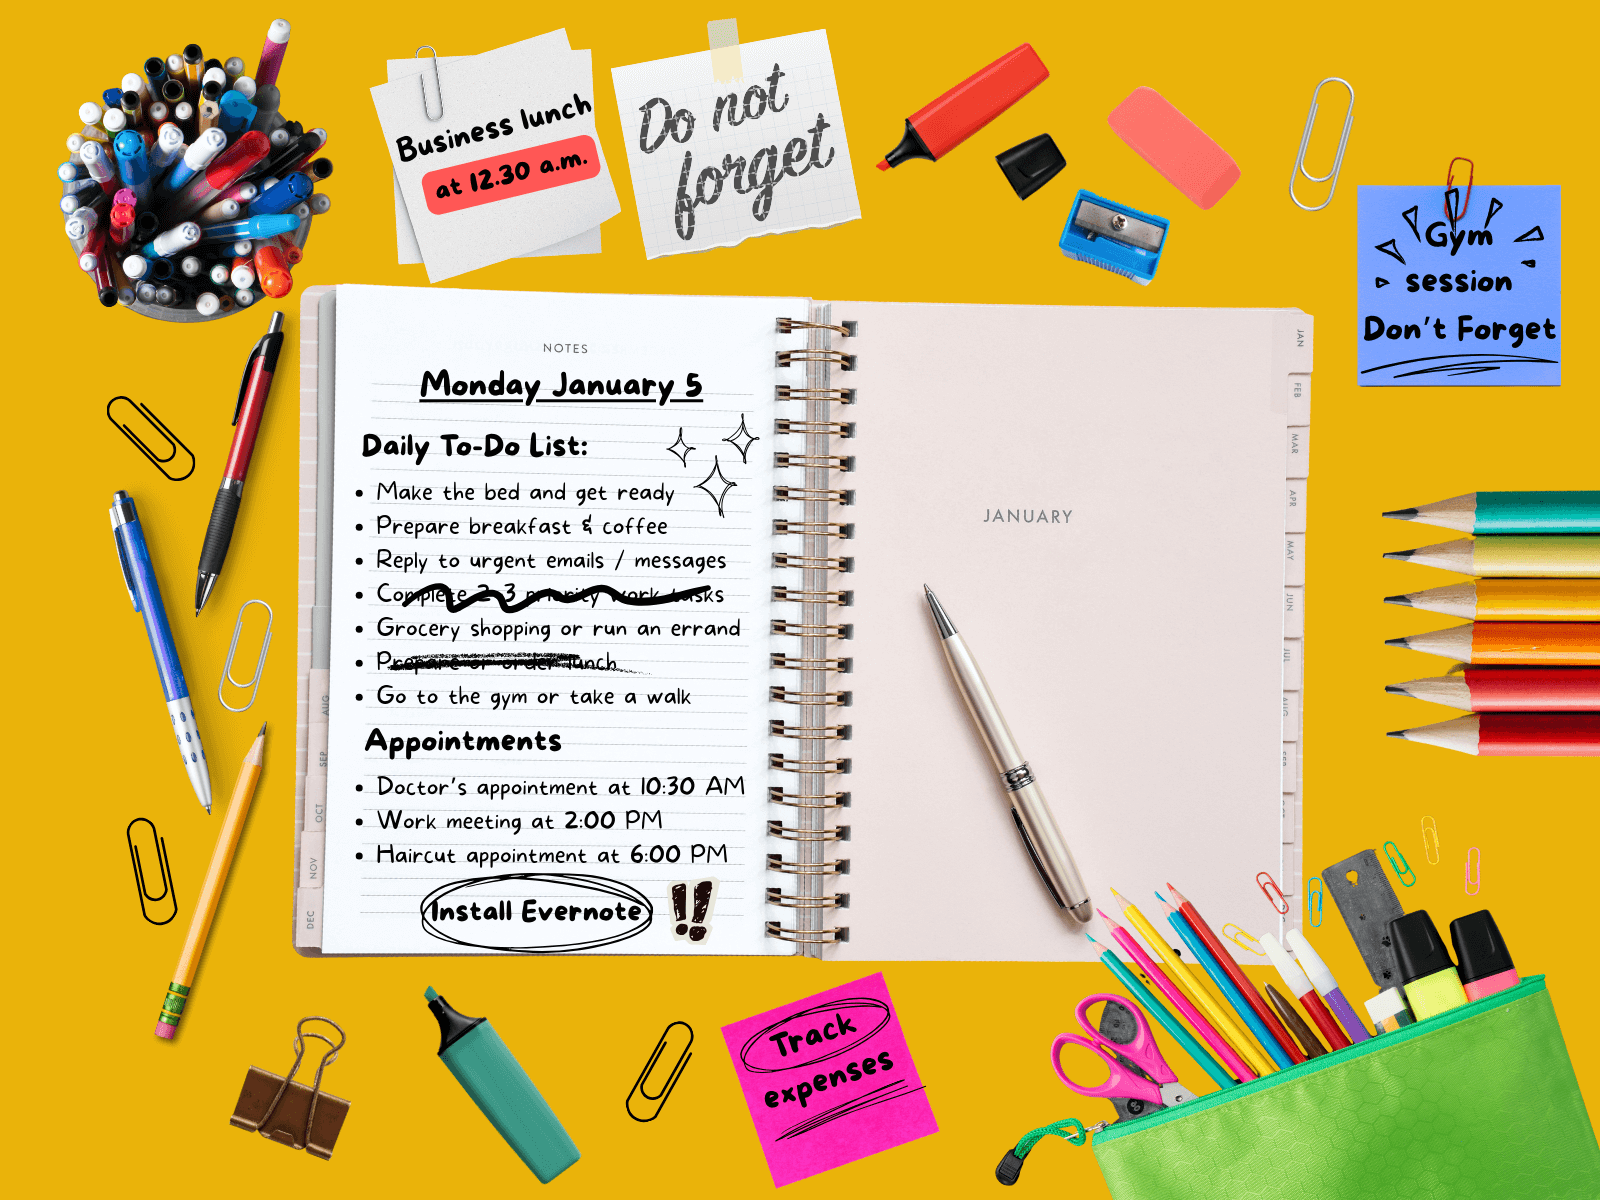 Business lunch
at 12.30 a.m.
Do not
forget
Gym
session
Don't Forget
NOTES
Monday January 5
Daily To-Do List:
• Make the bed and get ready
• Prepare breakfast & coffee
• Reply to urgent emails / messages
• Complete 2-3 priority work tasks
• Grocery shopping or run an errand
• Prepare or order lunch
• Go to the gym or take a walk
Appointments
• Doctor's appointment at 10:30 AM
• Work meeting at 2:00 PM
• Haircut appointment at 6:00 PM
Install Evernote
!!
AUG
SEP
OCT
NOV
DEC
JANUARY
JAN
FEB
MAR
APR
MAY
JUN
JUL
AUG
Track
expenses